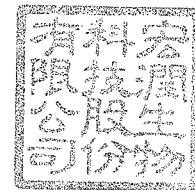 宏潤生物
科技股份
有限公司